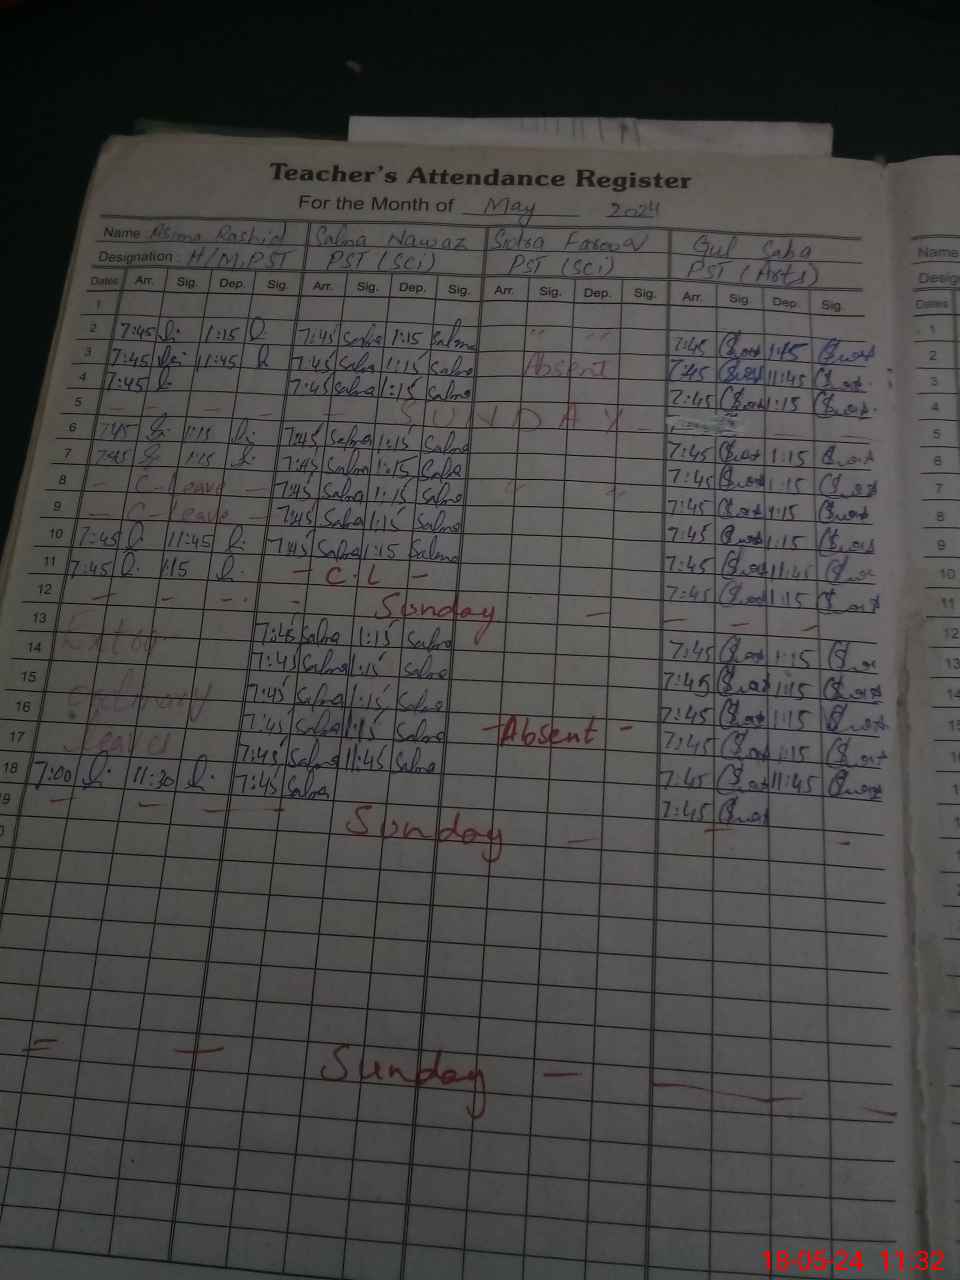 Teacher's Attendance Register
For the Month of May 2024
Name Asima Rashid Salma Nawaz Sidra Farooq Gul Saba Name
Designation : H/M, PST PST (Sci) PST (Sci) PST (Arts) Desig
Dates Arr. Sig. Dep. Sig. Arr. Sig. Dep. Sig. Arr. Sig. Dep. Sig. Arr. Sig. Dep. Sig. Dates
1 1
2 7:45 1:15 7:45 Salma 1:15 Salma " " 7:45 1:45 2
3 7:45 11:45 7:45 Salma 1:15 Salma Absent 7:45 11:45 3
4 7:45 7:45 Salma 1:15 Salma 7:45 1:15 4
5 – – – – – SUNDAY – – – 5
6 7:45 1:15 7:45 Salma 1:15 Salma 7:45 1:15 6
7 7:45 1:15 7:45 Salma 1:15 Salma 7:45 1:15 7
8 – C-Leave – 7:45 Salma 1:15 Salma " " 7:45 1:15 8
9 – C-Leave – 7:45 Salma 1:15 Salma 7:45 1:15 9
10 7:45 11:45 7:45 Salma 1:15 Salma 7:45 11:45 10
11 7:45 1:15 – C.L – 7:45 1:15 11
12 – – – – Sunday – – – – 12
13 7:45 Salma 1:15 Salma 7:45 1:15 13
14 7:45 Salma 1:15 Salma 7:45 1:15 14
15 7:45 Salma 1:15 Salma 7:45 1:15 15
16 7:45 Salma 1:15 Salma – Absent – 7:45 1:15
17 Leave 7:45 Salma 11:45 Salma 7:45 11:45
18 7:00 11:30 7:45 Salma 7:45
9 – – – – Sunday – – –
0
= – Sunday –
18-05-24 11:32